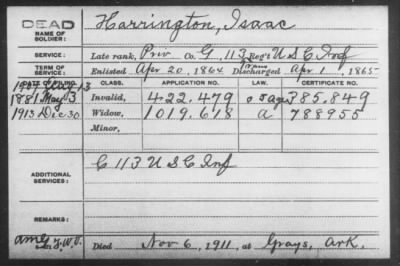 DEAD
NAME OF SOLDIER: Harrington, Isaac
SERVICE: Late rank, Priv Co. G, 113 Reg't U S C Inf
TERM OF SERVICE: Enlisted Apr 20, 1864 Discharged Apr 1, 1865
DATE OF FILING. CLASS. APPLICATION NO. LAW. CERTIFICATE NO.
1881 May 3 Invalid, 422.479 385.849
1913 Dec 30 Widow, 1019.618 a 788955
Minor,
C 113 U S C Inf
ADDITIONAL SERVICES:
REMARKS:
Died Nov 6, 1911, at Grays, Ark.